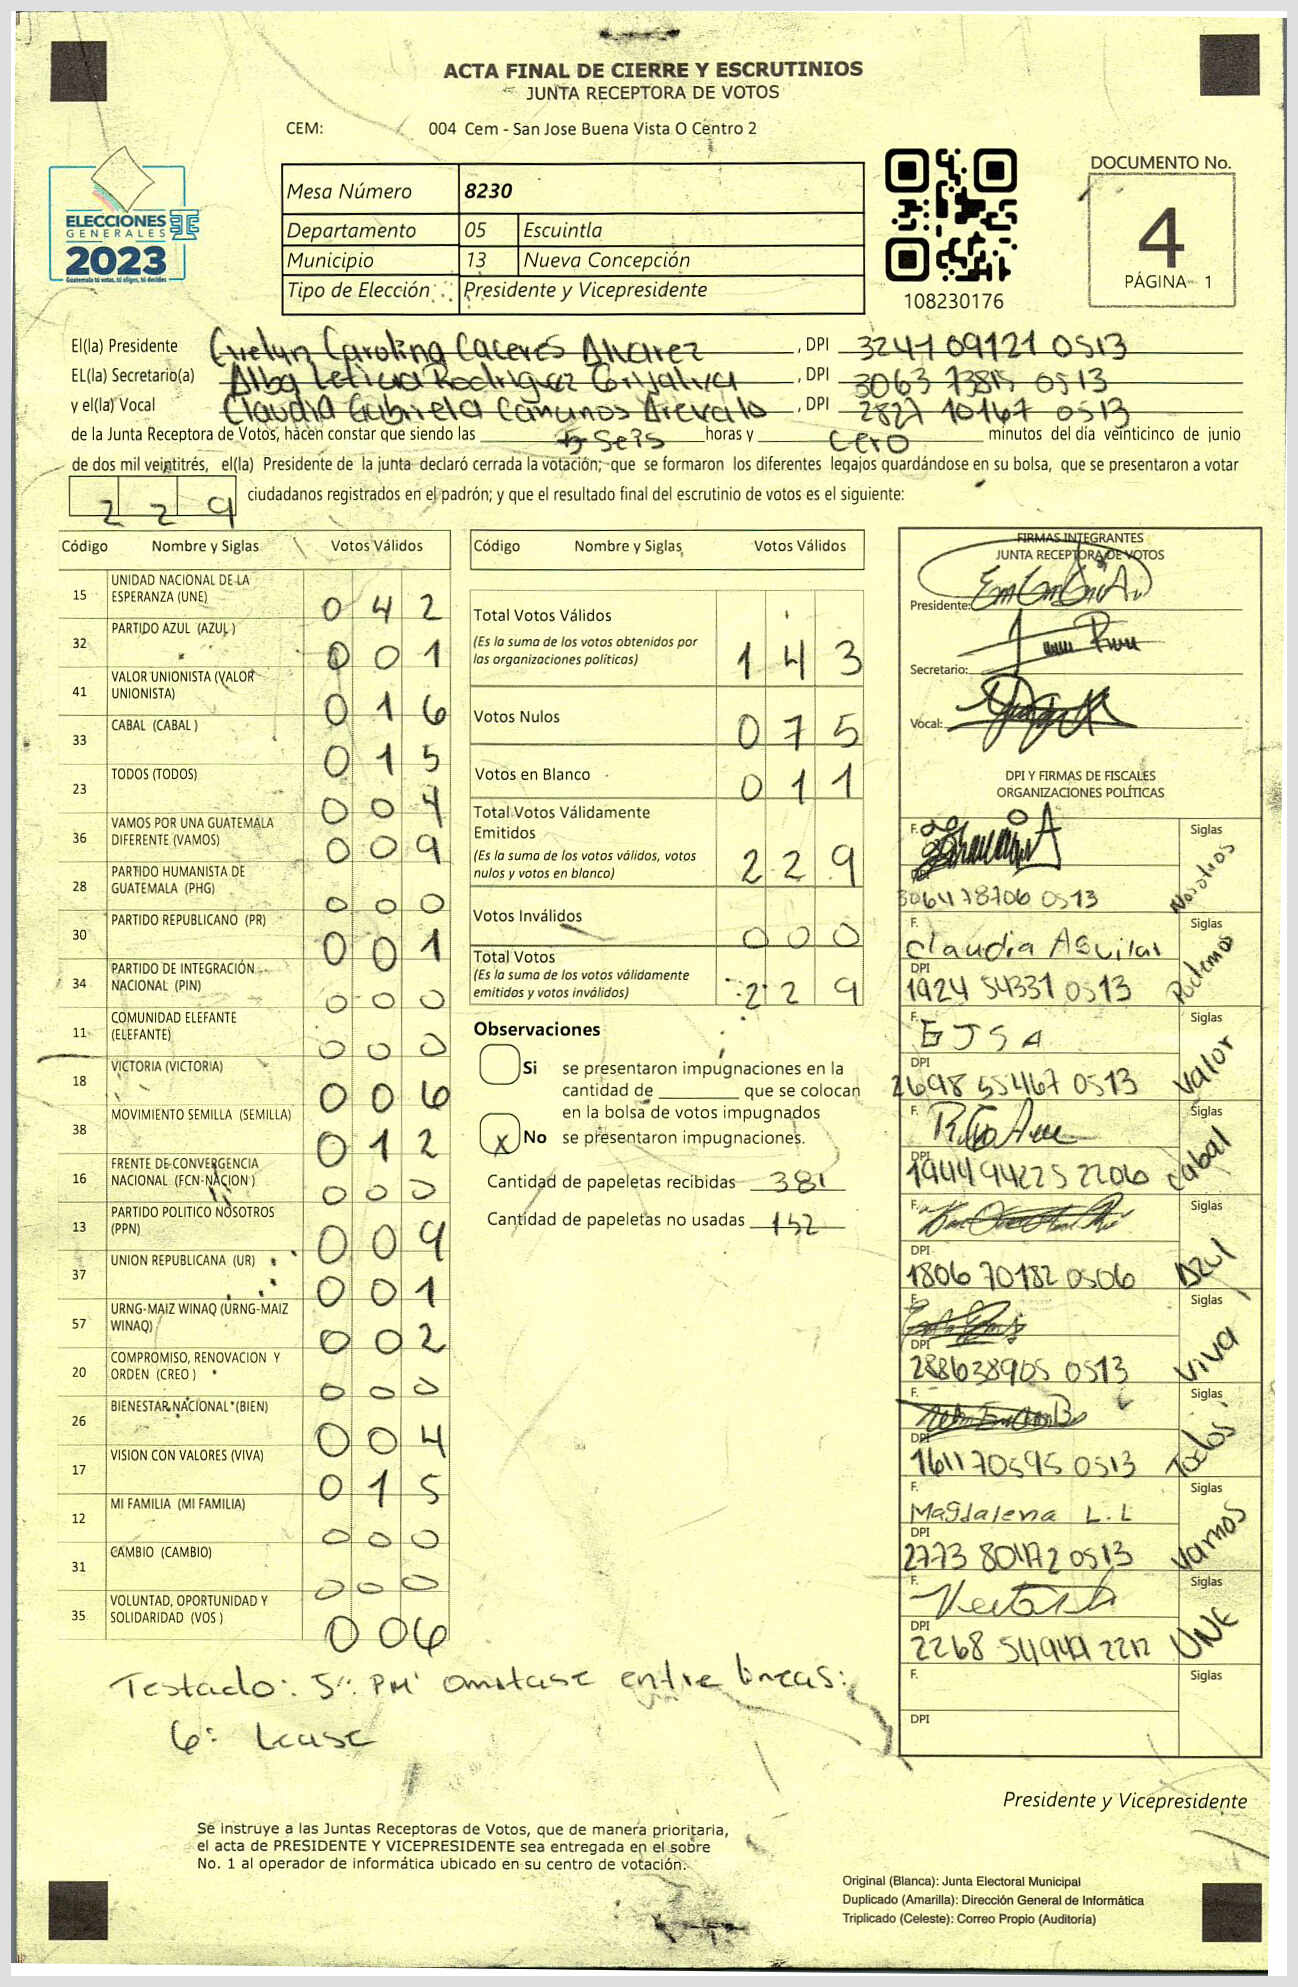 ACTA FINAL DE CIERRE Y ESCRUTINIOS
JUNTA RECEPTORA DE VOTOS
CEM: 004 Cem - San Jose Buena Vista O Centro 2
ELECCIONES
GENERALES
2023
Guatemala tú votas, tú eliges, tú decides
Mesa Número 8230
Departamento 05 Escuintla
Municipio 13 Nueva Concepción
Tipo de Elección Presidente y Vicepresidente
108230176
DOCUMENTO No.
4
PÁGINA 1
El(la) Presidente Evelyn Carolina Caceres Alvarez , DPI 3241 09121 0513
EL(la) Secretario(a) Alba Leticia Rodriguez Grijalva , DPI 3063 73815 0513
y el(la) Vocal Claudia Gabriela Arevalo , DPI 2827 10167 0513
de la Junta Receptora de Votos, hacen constar que siendo las 5 Seis horas y Cero minutos del día veinticinco de junio
de dos mil veintitrés, el(la) Presidente de la junta declaró cerrada la votación; que se formaron los diferentes legajos guardándose en su bolsa, que se presentaron a votar
229 ciudadanos registrados en el padrón; y que el resultado final del escrutinio de votos es el siguiente:
Código Nombre y Siglas Votos Válidos
15 UNIDAD NACIONAL DE LA ESPERANZA (UNE) 042
32 PARTIDO AZUL (AZUL ) 001
41 VALOR UNIONISTA (VALOR UNIONISTA) 016
33 CABAL (CABAL ) 015
23 TODOS (TODOS) 004
36 VAMOS POR UNA GUATEMALA DIFERENTE (VAMOS) 009
28 PARTIDO HUMANISTA DE GUATEMALA (PHG) 000
30 PARTIDO REPUBLICANO (PR) 001
34 PARTIDO DE INTEGRACIÓN NACIONAL (PIN) 000
11 COMUNIDAD ELEFANTE (ELEFANTE) 000
18 VICTORIA (VICTORIA) 006
38 MOVIMIENTO SEMILLA (SEMILLA) 012
16 FRENTE DE CONVERGENCIA NACIONAL (FCN-NACION ) 000
13 PARTIDO POLITICO NOSOTROS (PPN) 009
37 UNION REPUBLICANA (UR) 001
57 URNG-MAIZ WINAQ (URNG-MAIZ WINAQ) 002
20 COMPROMISO, RENOVACION Y ORDEN (CREO ) 000
26 BIENESTAR NACIONAL (BIEN) 004
17 VISION CON VALORES (VIVA) 015
12 MI FAMILIA (MI FAMILIA) 000
31 CAMBIO (CAMBIO) 000
35 VOLUNTAD, OPORTUNIDAD Y SOLIDARIDAD (VOS ) 006
Testado: 5: PM omitase entre lineas:
6: Lease
Código Nombre y Siglas Votos Válidos
Total Votos Válidos
(Es la suma de los votos obtenidos por
las organizaciones políticas) 143
Votos Nulos 075
Votos en Blanco 011
Total Votos Válidamente
Emitidos
(Es la suma de los votos válidos, votos
nulos y votos en blanco) 229
Votos Inválidos 000
Total Votos
(Es la suma de los votos válidamente
emitidos y votos inválidos) 229
Observaciones
Si se presentaron impugnaciones en la
cantidad de ________ que se colocan
en la bolsa de votos impugnados
X No se presentaron impugnaciones.
Cantidad de papeletas recibidas 381
Cantidad de papeletas no usadas 152
FIRMAS INTEGRANTES
JUNTA RECEPTORA DE VOTOS
Presidente:
Secretario:
Vocal:
DPI Y FIRMAS DE FISCALES
ORGANIZACIONES POLÍTICAS
F. Siglas Nosotros
3064 78706 0513
F. Claudia Aguilar Siglas Podemos
DPI 1924 54331 0513
F. EJSA Siglas Valor
DPI 2698 55467 0513
F. Siglas Cabal
DPI 1944 94225 2206
F. Siglas Azul
DPI 1806 70182 0506
F. Siglas Viva
DPI 288638905 0513
F. Siglas Todos
DPI 1611 70595 0513
F. Magdalena L.L Siglas Vamos
DPI 2773 80472 0513
F. Siglas UNE
DPI 2268 54949 2212
F. Siglas
DPI
Presidente y Vicepresidente
Se instruye a las Juntas Receptoras de Votos, que de manera prioritaria,
el acta de PRESIDENTE Y VICEPRESIDENTE sea entregada en el sobre
No. 1 al operador de informática ubicado en su centro de votación.
Original (Blanca): Junta Electoral Municipal
Duplicado (Amarilla): Dirección General de Informática
Triplicado (Celeste): Correo Propio (Auditoría)